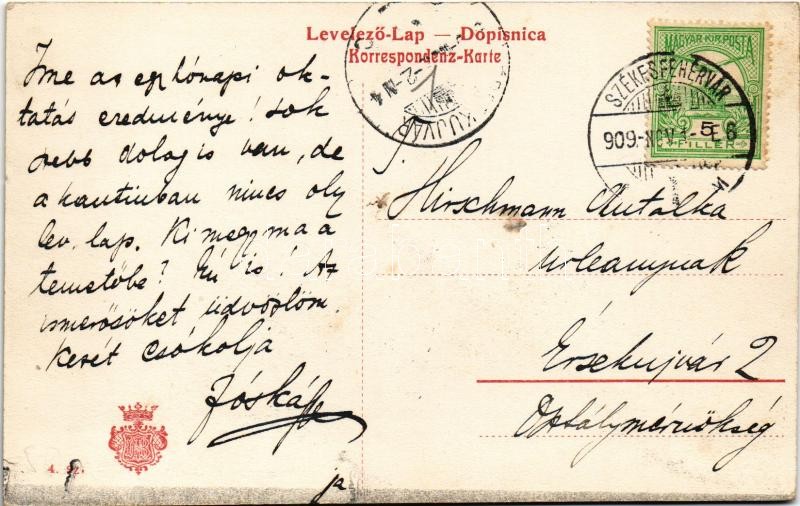 Levelező-Lap — Dopisnica
Korrespondenz-Karte
MAGYAR KIR. POSTA
5
FILLER
SZÉKESFEHÉRVÁR
909.-NOV.1.- E6
KUJVÁR
Ime az egy hónapi ok-
tatás eredménye! Sok
szebb dolog is van, de
a kantinban nincs oly
lev. lap. Ki megy ma a
temetőbe? Én is! Az
ismerősöket üdvözlöm.
Kezét csókolja
Jóska
ja
S. Hirschmann Antalka
urleánynak
Érsekujvár 2
Osztálymérnökség
4. sz.